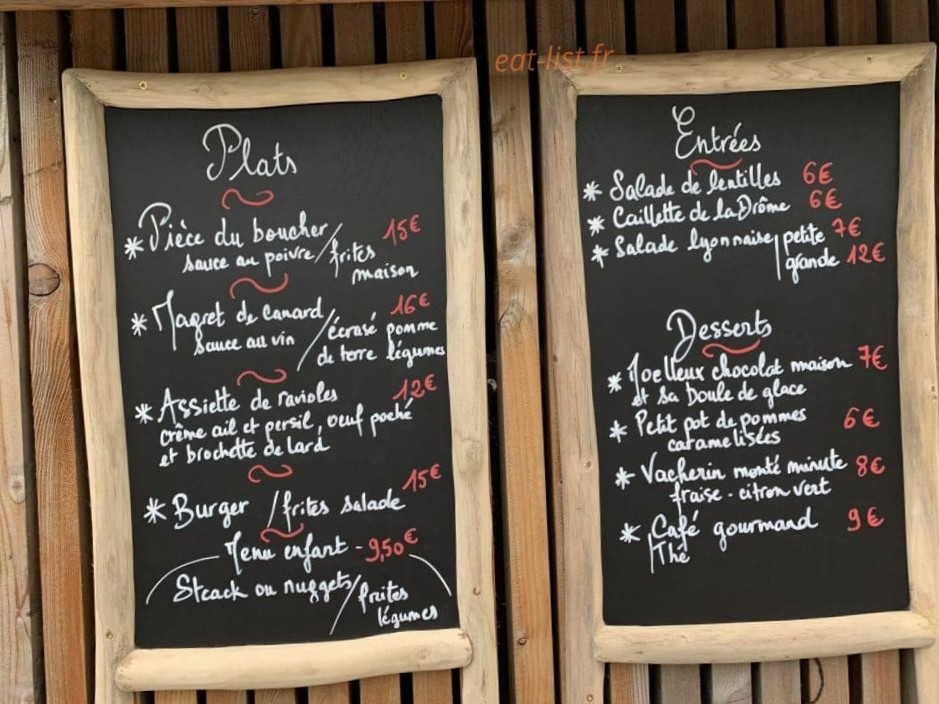 eat-list.fr
Plats
* Pièce du boucher 15€
sauce au poivre / frites
maison
* Magret de canard 16€
sauce au vin / écrasé pomme
de terre légumes
* Assiette de ravioles 12€
crême ail et persil, oeuf poché
et brochette de lard
* Burger / frites salade 15€
Menu enfant - 9,50€
Steack ou nuggets / frites
légumes
Entrées
* Salade de lentilles 6€
* Caillette de la Drôme 6€
* Salade lyonnaise petite 7€
grande 12€
Desserts
* Moelleux chocolat maison 7€
et sa boule de glace
* Petit pot de pommes 6€
caramelisées
* Vacherin monté minute 8€
fraise - citron vert
* Café gourmand 9€
Thé